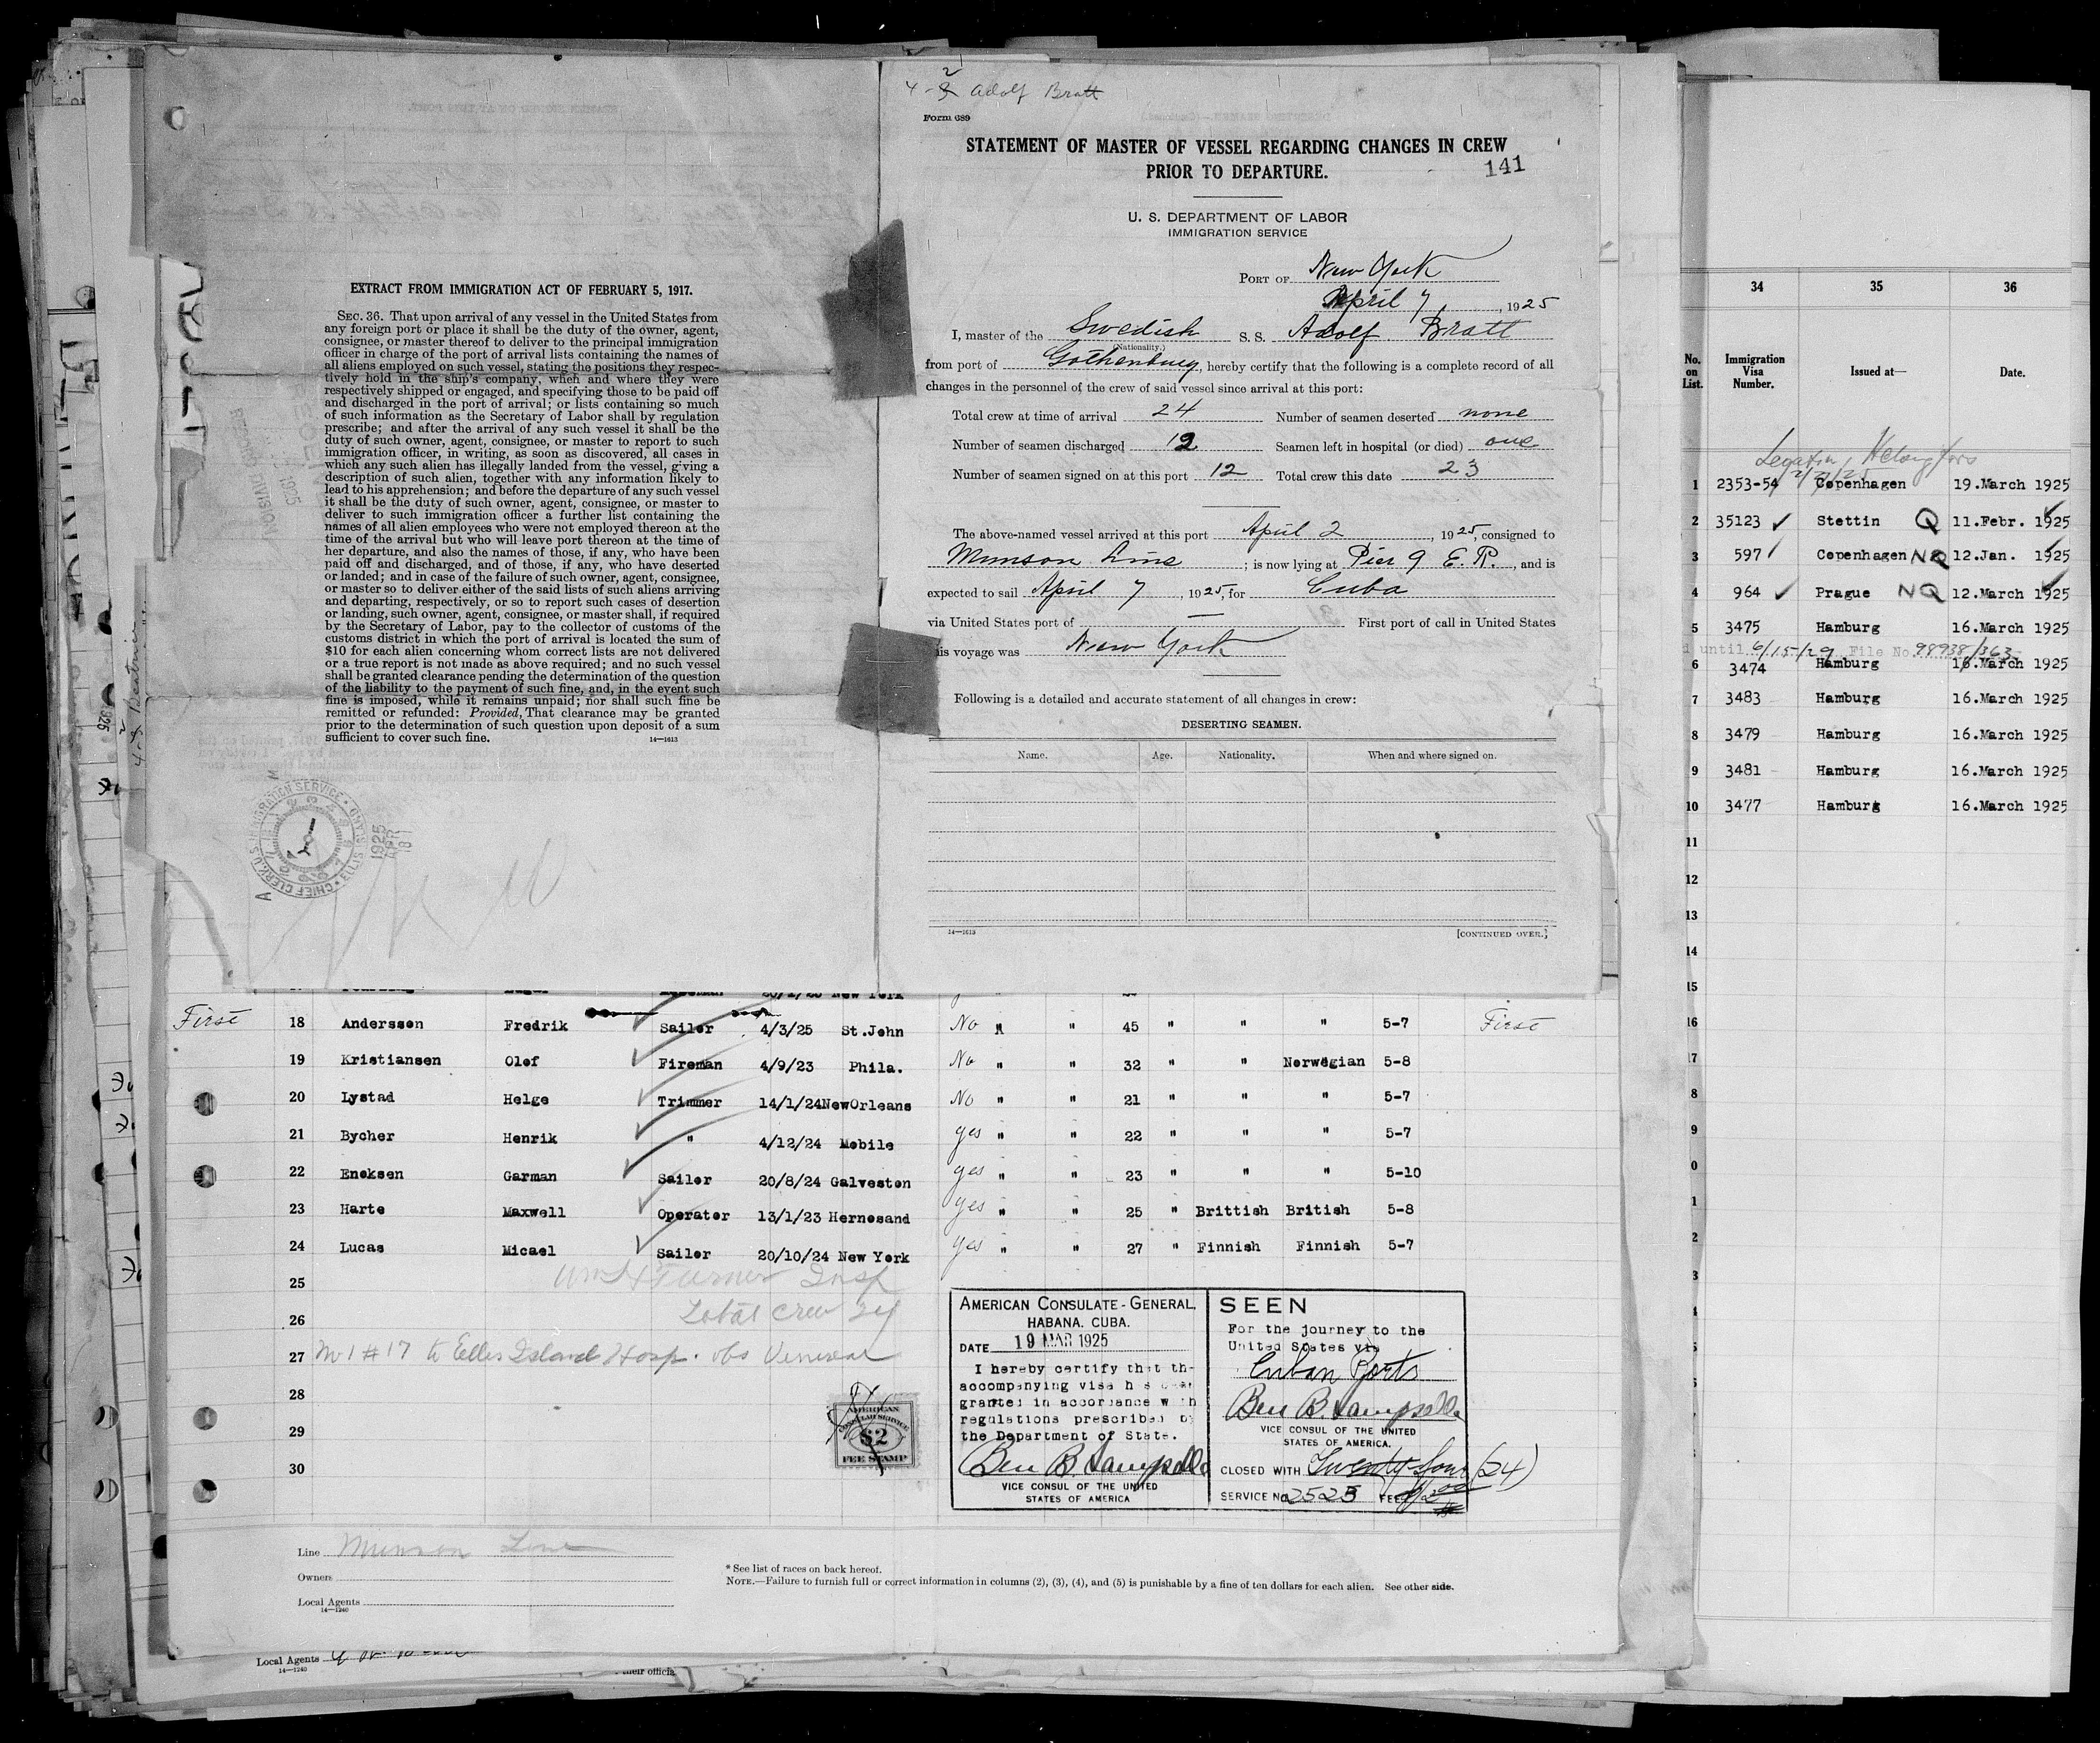 EXTRACT FROM IMMIGRATION ACT OF FEBRUARY 5, 1917.
SEC. 36. That upon arrival of any vessel in the United States from
any foreign port or place it shall be the duty of the owner, agent,
consignee, or master thereof to deliver to the principal immigration
officer in charge of the port of arrival lists containing the names of
all aliens employed on such vessel, stating the positions they respec-
tively hold in the ship's company, when and where they were
respectively shipped or engaged, and specifying those to be paid off
and discharged in the port of arrival; or lists containing so much
of such information as the Secretary of Labor shall by regulation
prescribe; and after the arrival of any such vessel it shall be the
duty of such owner, agent, consignee, or master to report to such
immigration officer, in writing, as soon as discovered, all cases in
which any such alien has illegally landed from the vessel, giving a
description of such alien, together with any information likely to
lead to his apprehension; and before the departure of any such vessel
it shall be the duty of such owner, agent, consignee, or master to
deliver to such immigration officer a further list containing the
names of all alien employees who were not employed thereon at the
time of the arrival but who will leave port thereon at the time of
her departure, and also the names of those, if any, who have been
paid off and discharged, and of those, if any, who have deserted
or landed; and in case of the failure of such owner, agent, consignee,
or master so to deliver either of the said lists of such aliens arriving
and departing, respectively, or so to report such cases of desertion
or landing, such owner, agent, consignee, or master shall, if required
by the Secretary of Labor, pay to the collector of customs of the
customs district in which the port of arrival is located the sum of
$10 for each alien concerning whom correct lists are not delivered
or a true report is not made as above required; and no such vessel
shall be granted clearance pending the determination of the question
of the liability to the payment of such fine, and, in the event such
fine is imposed, while it remains unpaid; nor shall such fine be
remitted or refunded: Provided, That clearance may be granted
prior to the determination of such question upon deposit of a sum
sufficient to cover such fine. 14—1613
CHIEF CLERK, U.S. IMMIGRATION SERVICE · ELLIS ISLAND
1925 APR 18
4-2 Adolf Bratt
Form 689
STATEMENT OF MASTER OF VESSEL REGARDING CHANGES IN CREW
PRIOR TO DEPARTURE.
141
U. S. DEPARTMENT OF LABOR
IMMIGRATION SERVICE
PORT OF New York
April 7, 1925
I, master of the Swedish S. S. Adolf Bratt
(Nationality.)
from port of Gothenburg, hereby certify that the following is a complete record of all
changes in the personnel of the crew of said vessel since arrival at this port:
Total crew at time of arrival 24 Number of seamen deserted none
Number of seamen discharged 12 Seamen left in hospital (or died) one
Number of seamen signed on at this port 12 Total crew this date 23
The above-named vessel arrived at this port April 2, 1925, consigned to
Munson Line; is now lying at Pier 9 E. R., and is
expected to sail April 7, 1925, for Cuba
via United States port of — First port of call in United States
his voyage was New York
Following is a detailed and accurate statement of all changes in crew:
DESERTING SEAMEN.
Name. Age. Nationality. When and where signed on.
14—1613 [CONTINUED OVER.]
First 18 Anderssen Fredrik Sailer 4/3/25 St.John No " " 45 " " " 5-7 First
19 Kristiansen Olef Fireman 4/9/23 Phila. No " " 32 " " Norwegian 5-8
20 Lystad Helge Trimmer 14/1/24 NewOrleans No " " 21 " " " 5-7
21 Bycher Henrik " 4/12/24 Mobile yes " " 22 " " " 5-7
22 Eneksen Garman Sailer 20/8/24 Galveston yes " " 23 " " " 5-10
23 Harte Maxwell Operator 13/1/23 Hernesand yes " " 25 " Brittish British 5-8
24 Lucas Micael Sailer 20/10/24 New York yes " " 27 " Finnish Finnish 5-7
25
Turner Insp
26 Total crew 24
27 No 1 # 17 to Ellis Island Hosp. obs Venereal
28
29
30
AMERICAN CONSULAR SERVICE
$2
FEE STAMP
AMERICAN CONSULATE-GENERAL,
HABANA, CUBA.
DATE 19 MAR 1925
I hereby certify that th-
accompanying visa has been
granted in accordance with
regulations prescribed by
the Department of State.
Ben B.
VICE CONSUL OF THE UNITED
STATES OF AMERICA
SEEN
For the journey to the
United States via
Cuban Ports
Ben B.
VICE CONSUL OF THE UNITED
STATES OF AMERICA.
CLOSED WITH Twenty-four (24)
SERVICE No 2523 FEE $2.00
Line Munson Line
Owners
Local Agents
14—1240
* See list of races on back hereof.
NOTE.—Failure to furnish full or correct information in columns (2), (3), (4), and (5) is punishable by a fine of ten dollars for each alien. See other side.
Local Agents
14—1240
their officia
34 35 36
No. on List. Immigration Visa Number. Issued at— Date.
Legation, Helsingfors
1 2353-54 Copenhagen 19.March 1925
2 35123 Stettin Q 11.Febr. 1925
3 597 Copenhagen NQ 12.Jan. 1925
4 964 Prague NQ 12.March 1925
5 3475 Hamburg 16.March 1925
until 6/15/29 File No. 98938/363
6 3474 Hamburg 16.March 1925
7 3483 Hamburg 16.March 1925
8 3479 Hamburg 16.March 1925
9 3481 Hamburg 16.March 1925
10 3477 Hamburg 16.March 1925
11
12
13
14
15
16
17
8
9
0
1
2
3